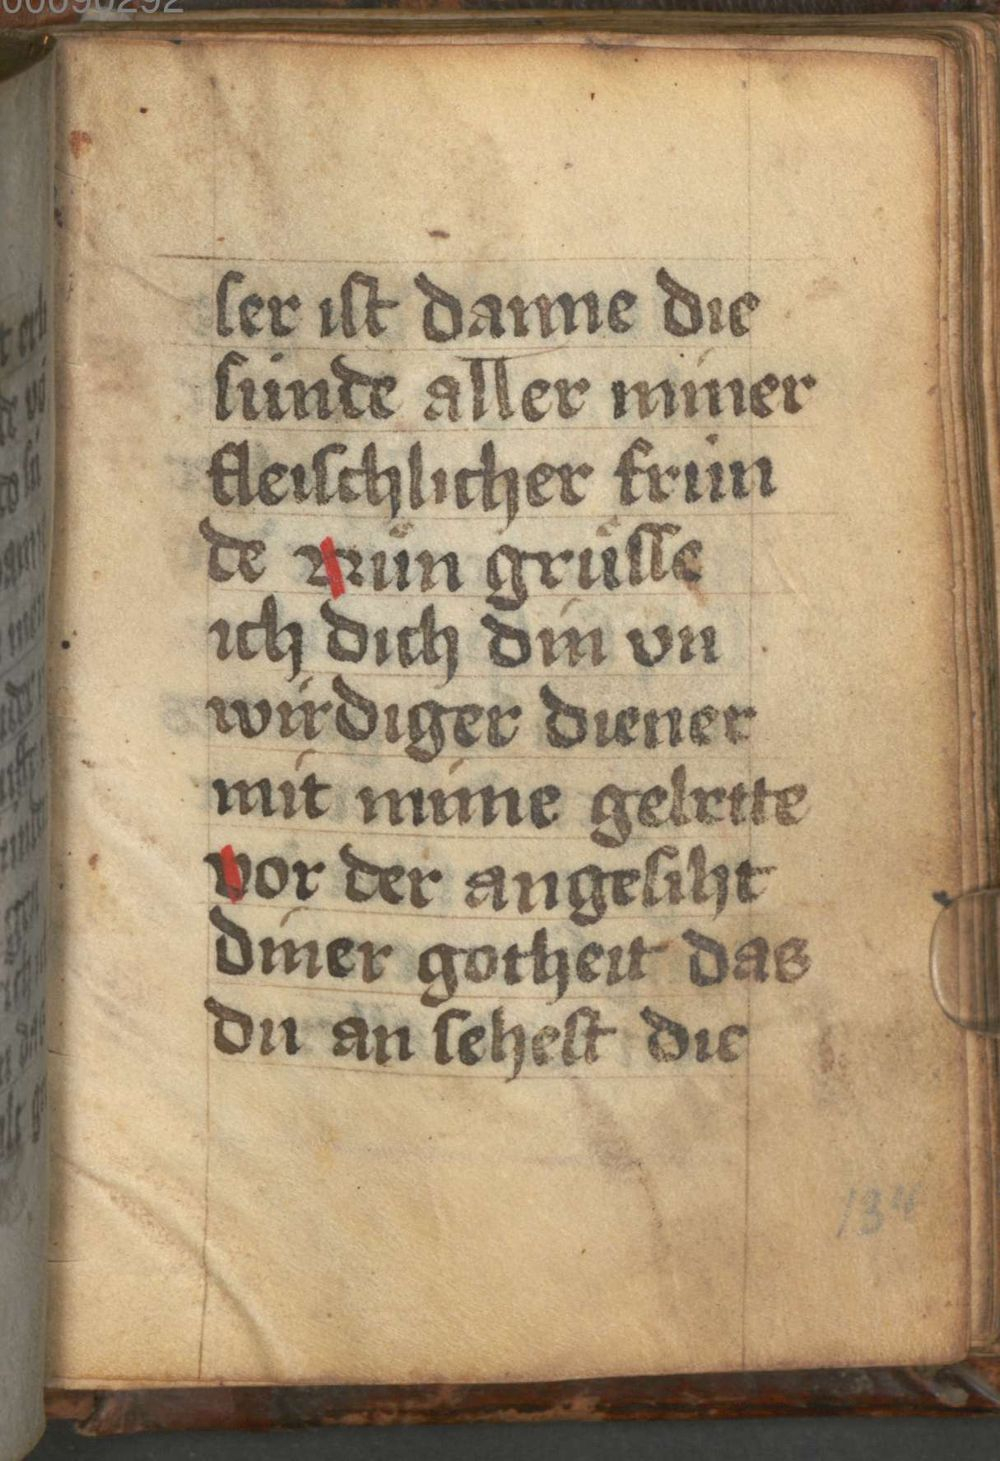 00090292
ser ist danne die
sünde aller miner
fleischlicher frún
de Nún grüsse
ich dich din vn
wirdiger diener
mit mime gebette
vor der angesiht
diner gotheit das
du an sehest die
134